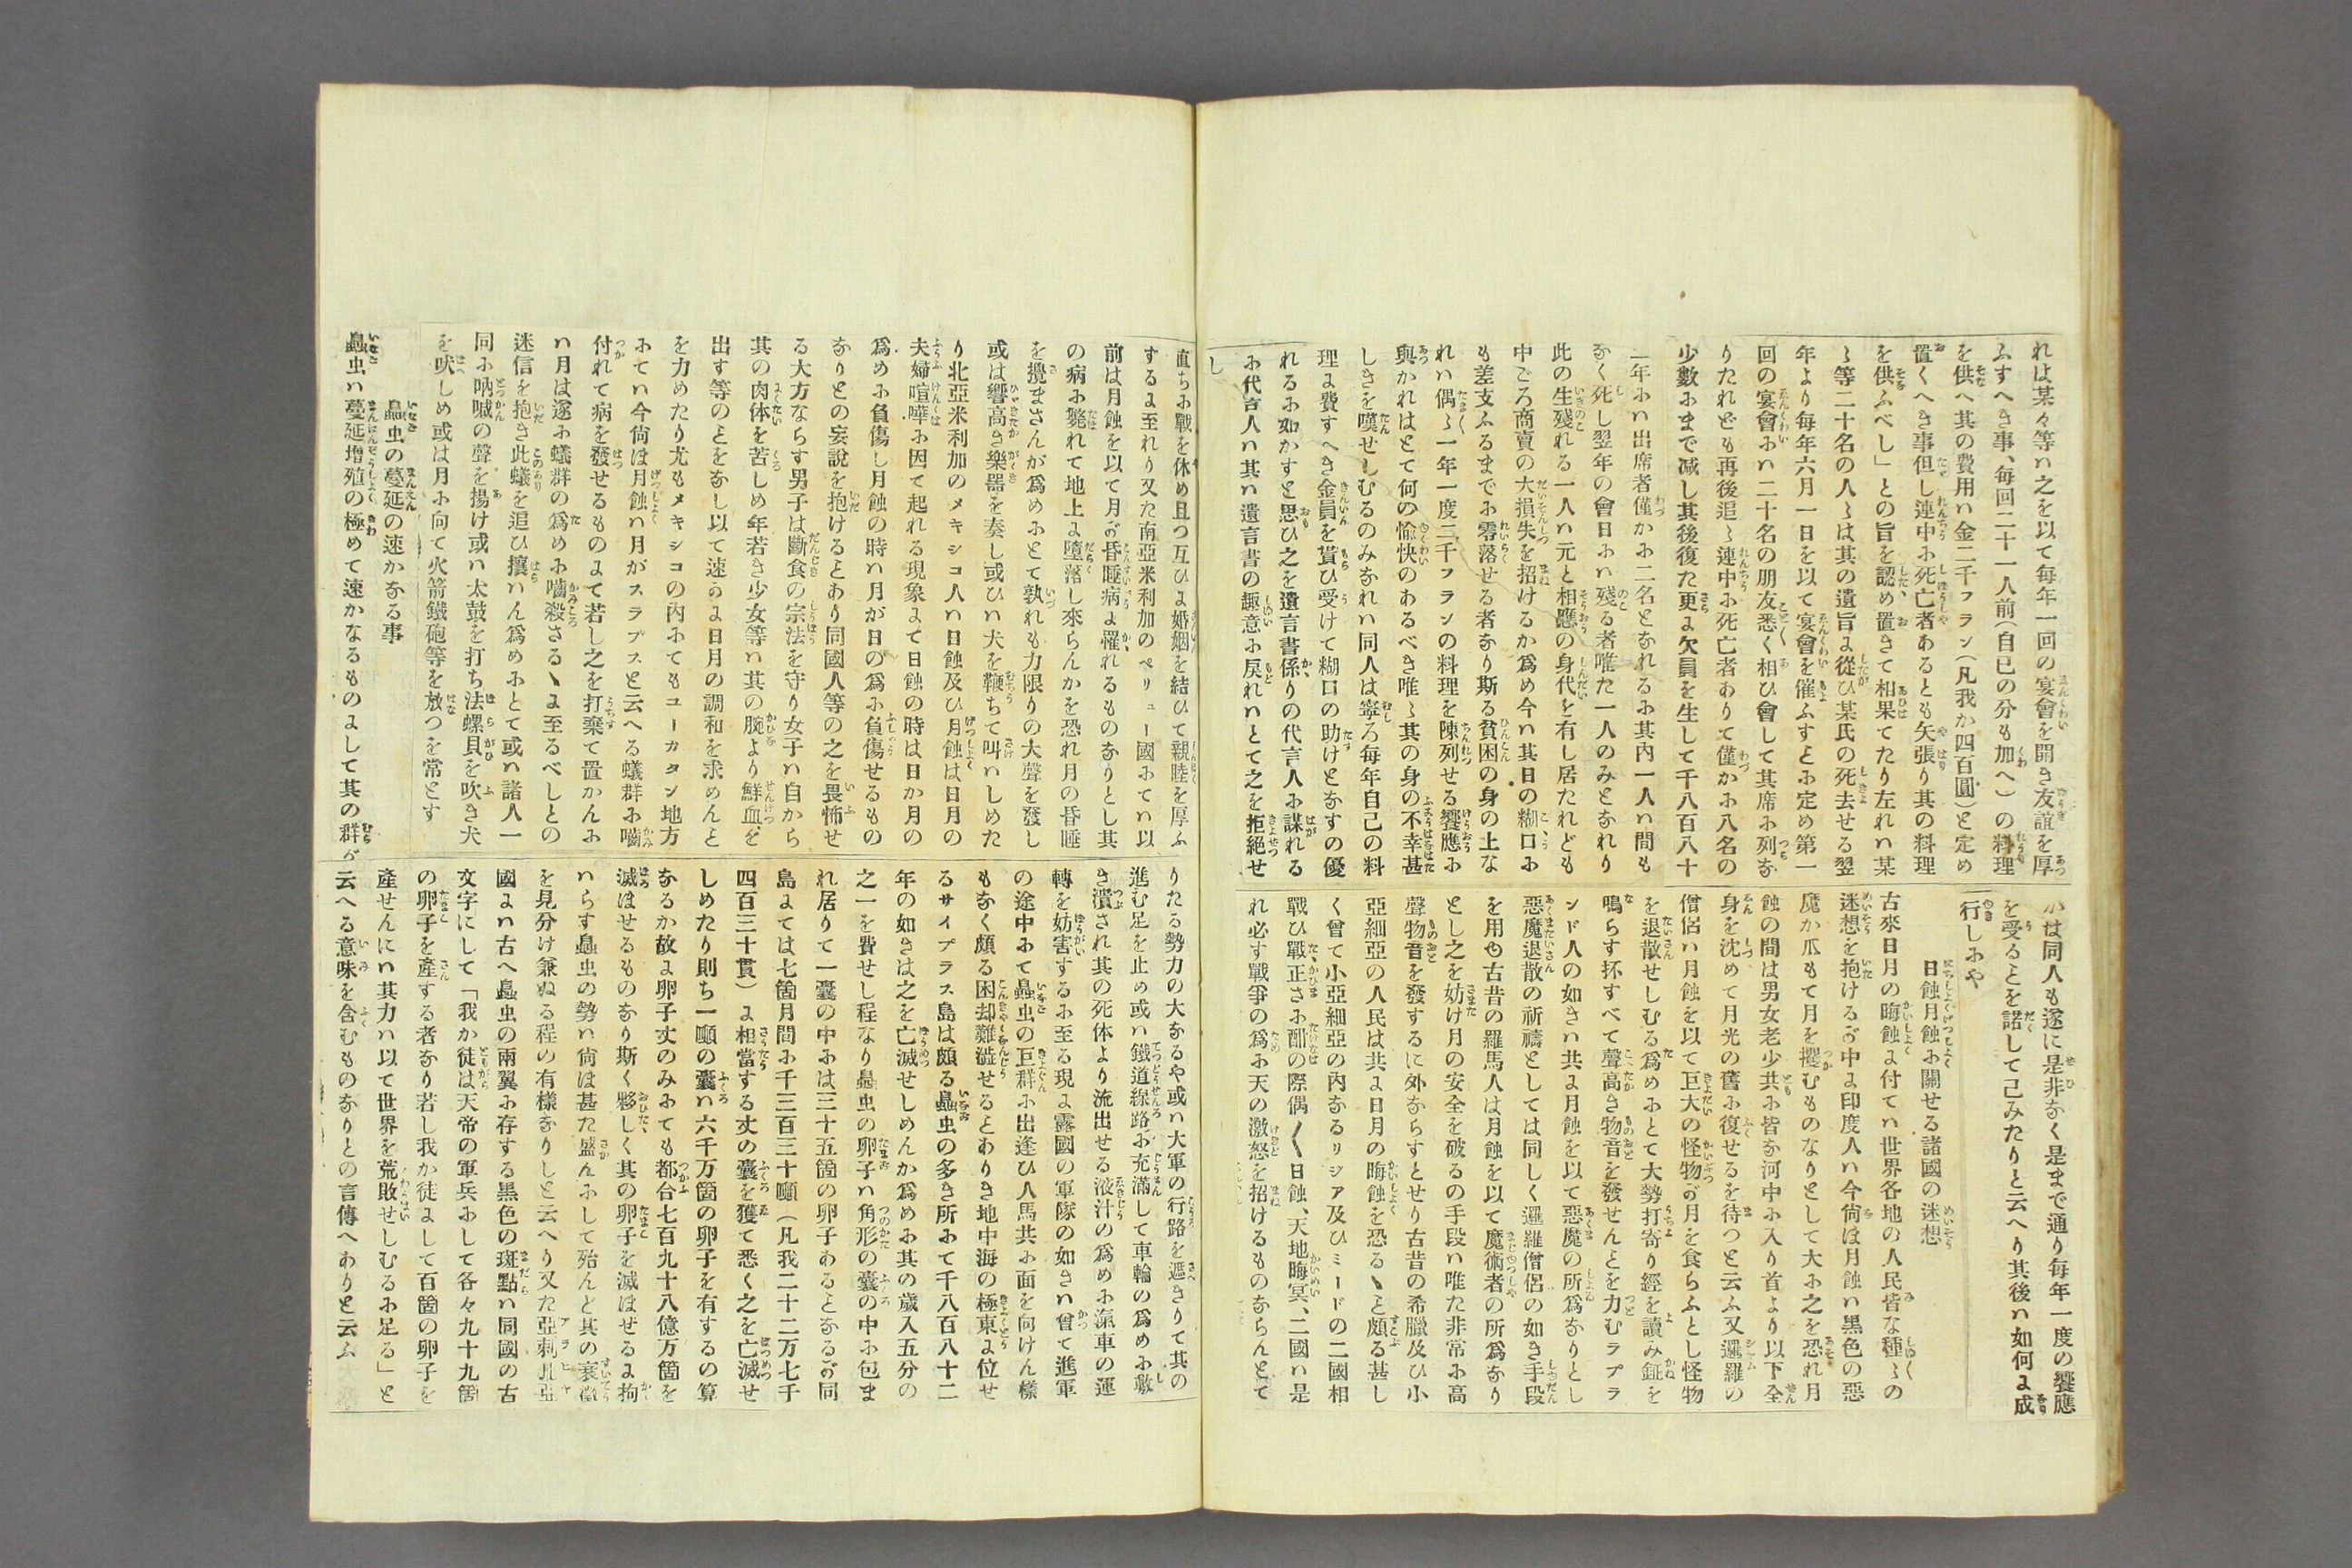 れは某々等ハ之を以て毎年一回の宴會を開き友誼を厚
ふすへき事、毎回二十一人前（自已の分も加へ）の料理
を供へ其の費用ハ金二千フラン（凡我か四百圓）と定め
置くへき事但し連中に死亡者あるとも矢張り其の料理
を供ふべし」との旨を認め置きて相果てたり左れハ某
〻等二十名の人〻は其の遺旨に從ひ某氏の死去せる翌
年より毎年六月一日を以て宴會を催ふすとに定め第一
回の宴會にハ二十名の朋友悉く相ひ會して其席に列な
りたれども再後追〻連中に死亡者ありて僅かに八名の
少數にまで減し其後復た更に欠員を生して千八百八十
一年にハ出席者僅かに二名となれるに其内一人ハ間も
なく死し翌年の會日にハ殘る者唯た一人のみとなれり
此の生殘れる一人ハ元と相應の身代を有し居たれども
中ごろ商賣の大損失を招けるか爲め今ハ其日の糊口に
も差支ふるまでに零落せる者なり斯る貧困の身の上な
れハ偶〻一年一度二千フランの料理を陳列せる饗應に
與かれはとて何の愉快のあるべき唯〻其の身の不幸甚
しきを嘆せしむるのみなれハ同人は寧ろ毎年自己の料
理に費すへき金員を貰ひ受けて糊口の助けとなすの優
れるに如かすと思ひ之を遺言書係りの代言人に謀れる
に代言人ハ其ハ遺言書の趣意に戻れハとて之を拒絶せ
し
かは同人も遂に是非なく是まで通り毎年一度の饗應
を受ることを諾して己みたりと云へり其後ハ如何に成
行しにや
日蝕月蝕に關せる諸國の迷想
古來日月の晦蝕に付てハ世界各地の人民皆な種〻の
迷想を抱けるが中に印度人ハ今尙は月蝕ハ黒色の惡
魔か爪もて月を攫むものなりとして大に之を恐れ月
蝕の間は男女老少共に皆な河中に入り首より以下全
身を沈めて月光の舊に復せるを待つと云ふ又暹羅の
僧侶ハ月蝕を以て巨大の怪物が月を食らふとし怪物
を退散せしむる爲めにとて大勢打寄り經を讀み鉦を
鳴らす抔すべて聲高き物音を發せんとを力むラプラ
ンド人の如きハ共に月蝕を以て惡魔の所爲なりとし
惡魔退散の祈禱としては同しく暹羅僧侶の如き手段
を用ゐ古昔の羅馬人は月蝕を以て魔術者の所爲なり
とし之を妨け月の安全を破るの手段ハ唯た非常に高
聲物音を發するに外ならすとせり古昔の希臘及ひ小
亞細亞の人民は共に日月の晦蝕を恐るゝと頗る甚し
く曾て小亞細亞の内なるリジア及ひミードの二國相
戰ひ戰正さに酣の際偶〳〵日蝕、天地晦冥、二國ハ是
れ必す戰爭の爲に天の激怒を招けるものならんとて
直ちに戰を休め且つ互ひに婚姻を結ひて親睦を厚ふ
するに至れり又た南亞米利加のペリュー國にてハ以
前は月蝕を以て月が昏睡病に罹れるものなりとし其
の病に斃れて地上に墮落し來らんかを恐れ月の昏睡
を攪まさんが爲めにとて孰れも力限りの大聲を發し
或は響高き樂器を奏し或ひハ犬を鞭ちて叫ハしめた
り北亞米利加のメキシコ人ハ日蝕及ひ月蝕は日月の
夫婦喧嘩に因て起れる現象にて日蝕の時は日か月の
爲めに負傷し月蝕の時ハ月が日の爲に負傷せるもの
なりとの妄說を抱けるとあり同國人等の之を畏怖せ
る大方ならす男子は斷食の宗法を守り女子ハ自から
其の肉体を苦しめ年若き少女等ハ其の腕より鮮血を
出す等のとをなし以て速のに日月の調和を求めんと
を力めたり尤もメキシコの内にてもユーカタン地方
にてハ今尙は月蝕ハ月がスラブスと云へる蟻群に嚙
付れて病を發せるものにて若し之を打棄て置かんに
ハ月は遂に蟻群の爲めに嚙殺さるゝに至るべしとの
迷信を抱き此蟻を追ひ攘ハん爲めにとて或ハ諸人一
同に吶喊の聲を揚け或ハ太鼓を打ち法螺貝を吹き犬
を吠しめ或は月に向て火箭鐵砲等を放つを常とす
蟲虫の蔓延の速かなる事
蟲虫ハ蔓延增殖の極めて速かなるものにして其の群が
りたる勢力の大なるや或ハ大軍の行路を遮きりて其の
進む足を止め或ハ鐵道線路に充滿して車輪の爲めに敷
き潰され其の死体より流出せる液汁の爲めに滊車の運
轉を妨害するに至る現に露國の軍隊の如きハ曾て進軍
の途中にて蟲虫の巨群に出逢ひ人馬共に面を向けん樣
もなく頗る困却難澁せるとありき地中海の極東に位せ
るサイプラス島は頗る蟲虫の多き所にて千八百八十二
年の如きは之を亡滅せしめんか爲め其の歲入五分の
之一を費せし程なり蟲虫の卵子ハ角形の囊の中に包ま
れ居りて一囊の中には三十五箇の卵子あるとなるが同
島にては七箇月間に千三百三十噸（凡我二十二万七千
四百三十貫）に相當する丈の囊を獲て悉く之を亡滅せ
しめたり則ち一噸の囊ハ六千万箇の卵子を有するの算
なるか故に卵子丈のみにても都合七百九十八億万箇を
滅はせるものなり斯く夥しく其の卵子を滅はせるに拘
ハらす蟲虫の勢ハ尙は甚た盛んにして殆んど其の衰微
を見分け兼ぬる程の有樣なりしと云へり又た亞刺比亞
國にハ古へ蟲虫の兩翼に存する黒色の斑點ハ同國の古
文字にして「我か徒は天帝の軍兵にして各々九十九箇
の卵子を產する者なり若し我か徒にして百箇の卵子を
產せんにハ其力ハ以て世界を荒敗せしむるに足る」と
云へる意味を含むものなりとの言傳へありと云ふ